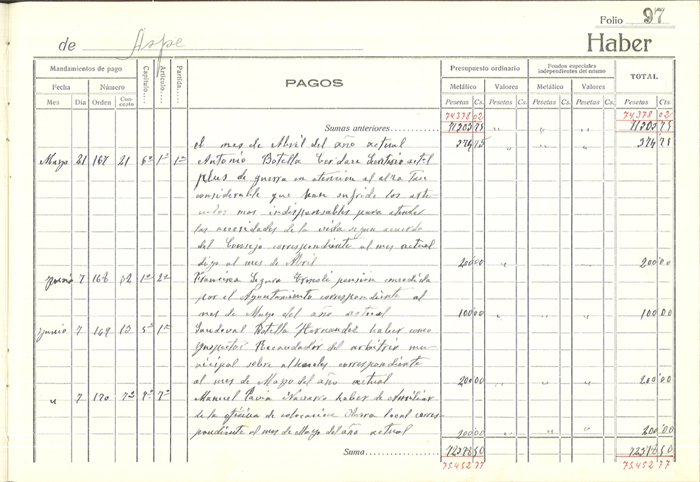 Folio 97
de Aspe Haber
Mandamientos de pago Capítulo.... Artículo.... Partida.... PAGOS Presupuesto ordinario Fondos especiales independientes del mismo TOTAL
Fecha Número Metálico Valores Metálico Valores
Mes Día Orden Concepto Pesetas Cs. Pesetas Cs. Pesetas Cs. Pesetas Cs. Pesetas Cts.
74378 02 74378 02
Sumas anteriores
el mes de Abril del año actual
Mayo 21 167 21 6º 1º 1º Antonio Botella
plus de guerra en atencion al alza tan
considerable que han sufrido los
mas indispensables para atender
las necesidades de la vida segun acuerdo
del Consejo correspondiente al mes actual
digo al mes de Abril 200 00 200 00
Junio 7 168 1º 2º Francisca Segura pension concedida
por el Ayuntamiento correspondiente al
mes de Mayo del año actual 100 00 100 00
Junio 7 169 13 5º 1º Sandoval Botella Hernandez haber como
Inspector Recaudador del arbitrio mu-
nicipal sobre alcoholes correspondiente
al mes de Mayo del año actual 200 00 200 00
" 7 170 72 8º 7º Manuel Pavia Navarro haber de Auxiliar
de la oficina de colocacion Obrera local corres-
pondiente al mes de Mayo del año actual 200 00 200 00
Suma
75452 77 75452 77